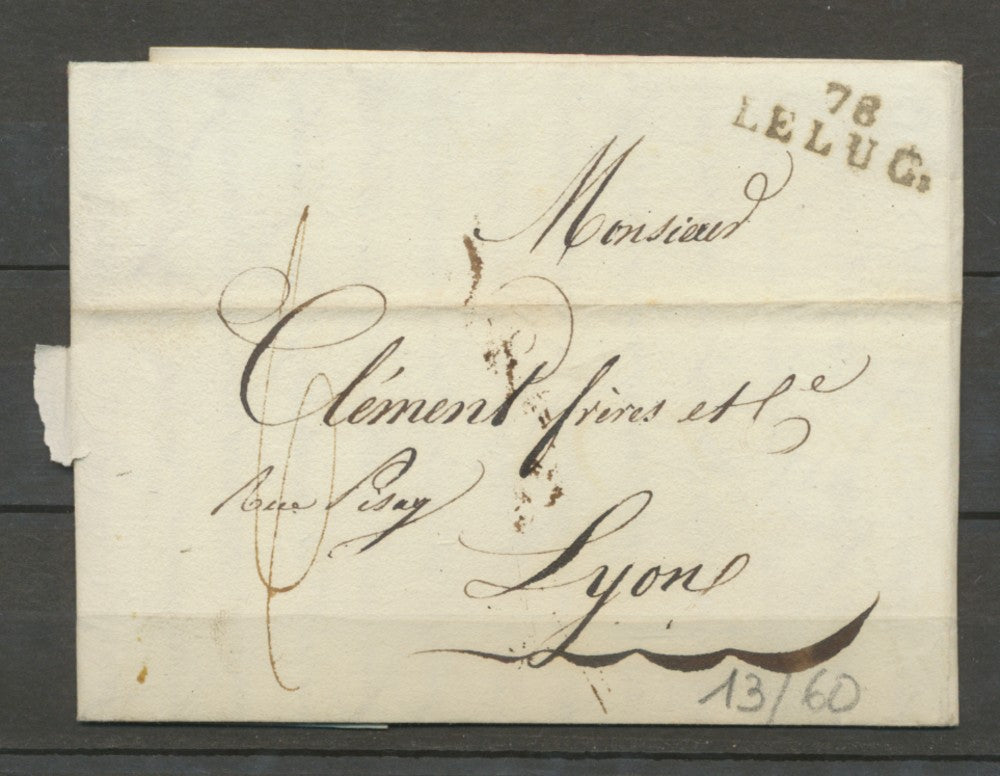 78
LE LUC.
Monsieur
6
Clément frères et Cie
Rue Pisay
Lyon
13/60